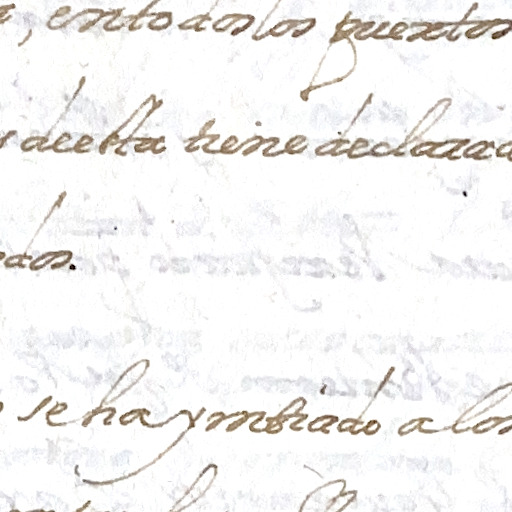 , entodos los puertos
de ella tiene declarad
dos.
se ha ymbiado a los